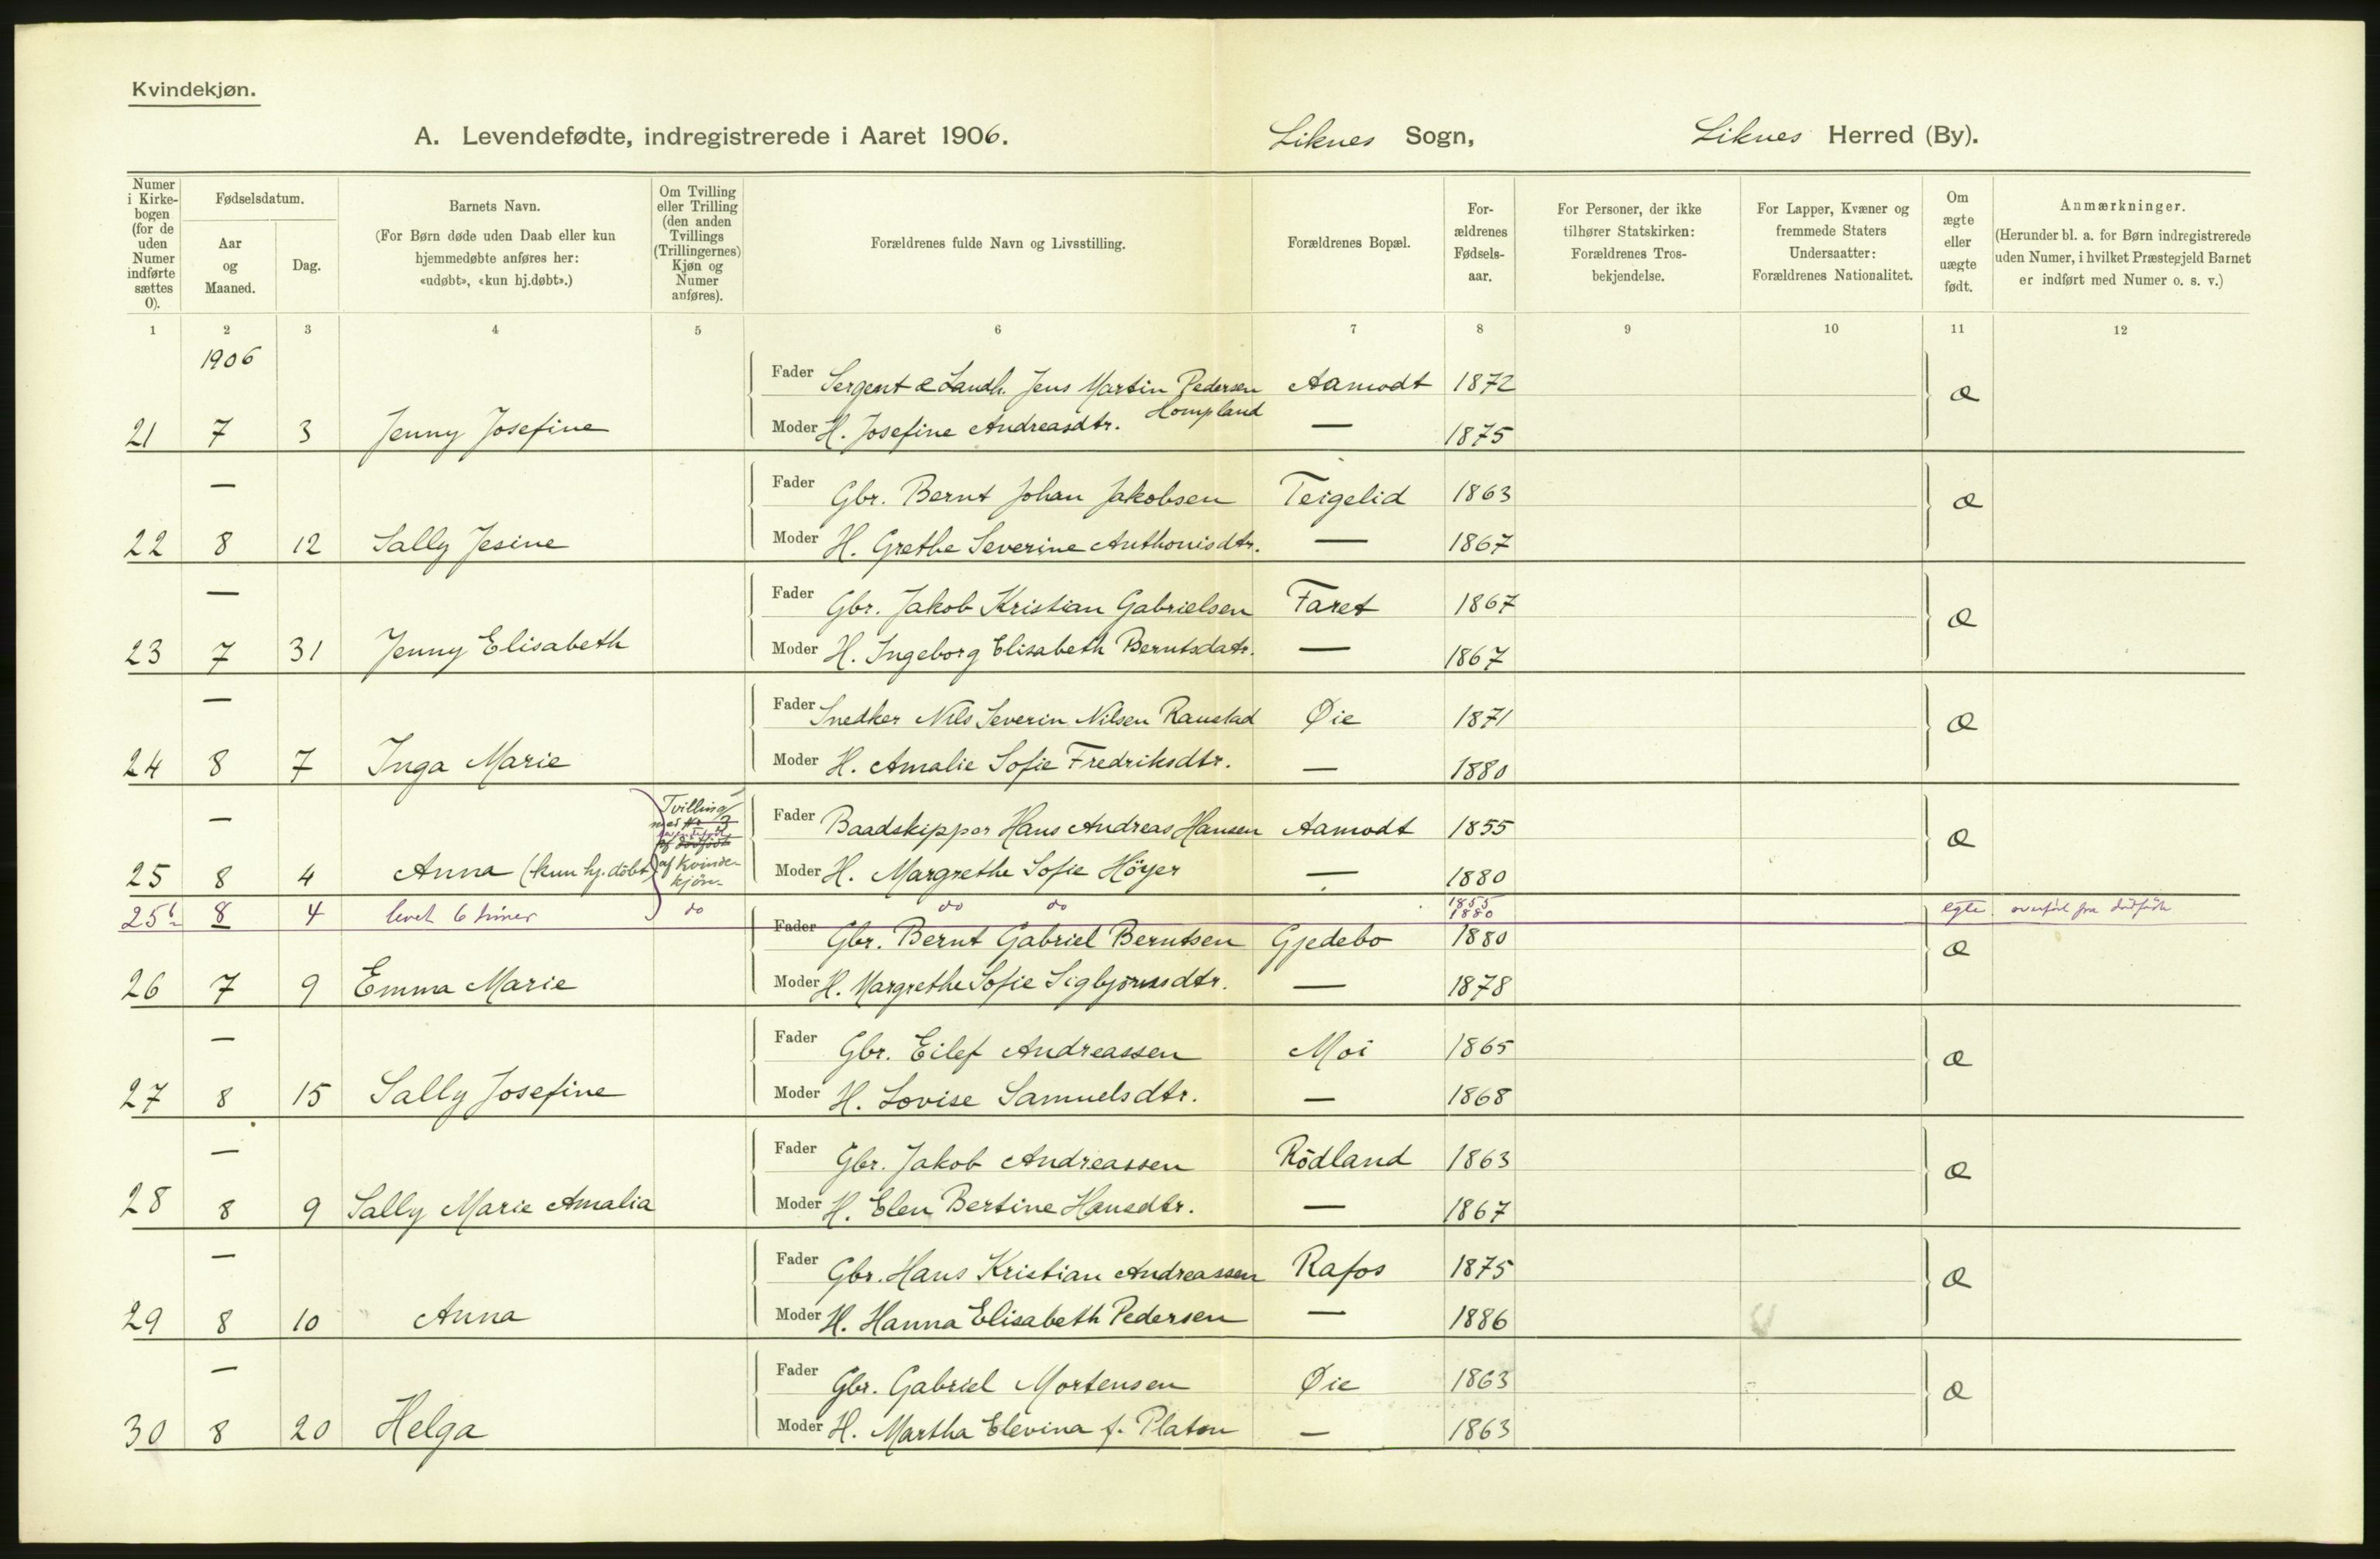 Kvindekjøn.
A. Levendefødte, indregistrerede i Aaret 1906. Liknes Sogn, Liknes Herred (By).
Numer i Kirkebogen (for de uden Numer indførte sættes 0).
Fødselsdatum.
Aar og Maaned.
Dag.
Barnets Navn.
(For Børn døde uden Daab eller kun hjemmedøbte anføres her: «udøbt», «kun hj.døbt».)
Om Tvilling eller Trilling (den anden Tvillings (Trillingernes) Kjøn og Numer anføres).
Forældrenes fulde Navn og Livsstilling.
Forældrenes Bopæl.
Forældrenes Fødselsaar.
For Personer, der ikke tilhører Statskirken: Forældrenes Trosbekjendelse.
For Lapper, Kvæner og fremmede Staters Undersaatter: Forældrenes Nationalitet.
Om ægte eller uægte født.
Anmærkninger.
(Herunder bl. a. for Børn indregistrerede uden Numer, i hvilket Præstegjeld Barnet er indført med Numer o. s. v.)
1 2 3 4 5 6 7 8 9 10 11 12
1906
Fader Sergent & Landh. Jens Martin Pedersen Hompland Aamodt 1872 æ
21 7 3 Jenny Josefine Moder H. Josefine Andreasdtr. — 1875
— Fader Gbr. Bernt Johan Jakobsen Teigelid 1863 æ
22 8 12 Sally Jesine Moder H. Grethe Severine Anthonisdtr. — 1867
— Fader Gbr. Jakob Kristian Gabrielsen Faret 1867 æ
23 7 31 Jenny Elisabeth Moder H. Ingeborg Elisabeth Berntsdatr. — 1867
— Fader Snedker Nils Severin Nilsen Ranestad Øie 1871 æ
24 8 7 Inga Marie Moder H. Amalie Sofie Fredriksdtr. — 1880
— Tvilling med af Kvindekjøn Fader Baadskipper Hans Andreas Hansen Aamodt 1855 æ
25 8 4 Anna (kun hj. döbt) Moder H. Margrethe Sofie Höyer — 1880
25b 8 4 levet 6 timer do do do 1855 1880 egte overført fra dødfødte
Fader Gbr. Bernt Gabriel Berntsen Gjedebo 1880 æ
26 7 9 Emma Marie Moder H. Margrethe Sofie Sigbjörnsdtr. — 1878
— Fader Gbr. Eilef Andreassen Moi 1865 æ
27 8 15 Sally Josefine Moder H. Lovise Samuelsdtr. — 1868
— Fader Gbr. Jakob Andreassen Rödland 1863 æ
28 8 9 Sally Marie Amalia Moder H. Elen Bertine Hansdtr. — 1867
— Fader Gbr. Hans Kristian Andreassen Rafos 1875 æ
29 8 10 Anna Moder H. Hanna Elisabeth Pedersen — 1886
— Fader Gbr. Gabriel Mortensen Øie 1863 æ
30 8 20 Helga Moder H. Martha Elevina f. Platou — 1863